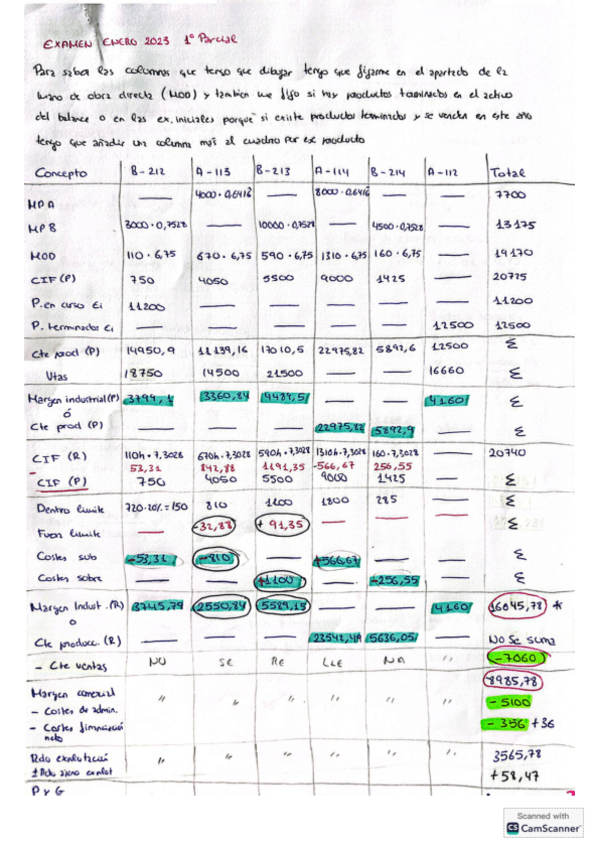 EXAMEN ENERO 2023 1º Parcial
Para saber las columnas que tengo que dibujar tengo que fijarme en el apartado de la
mano de obra directa (MOD) y también me fijo si hay productos terminados en el activo
del balance o en las ex. iniciales porque si existe productos terminados y se venden en este año
tengo que añadir un columna más al cuadro por ese producto
Concepto B-212 A-113 B-213 A-114 B-214 A-112 Total
MPA — 4000·0,6416 — 8000·0,6416 — — 7700
MPB 3000·0,7528 — 10000·0,7528 — 4500·0,7528 — 13175
MOD 110·6,75 670·6,75 590·6,75 1310·6,75 160·6,75 — 19170
CIF (P) 750 4050 5500 9000 1425 — 20725
P. en curso Ei 11200 — — — — — 11200
P. terminados Ei — — — — — 12500 12500
Cte prod (P) 14950,9 11139,16 17010,5 22975,82 5892,6 12500 Σ
Vtas 18750 14500 21500 — — 16660 Σ
Margen industrial (P) 3799,1 3360,84 4489,5 — — 4160 Σ
ó
Cte prod (P) — — — 22975,82 5892,9 — Σ
CIF (R) 110h·7,3028 670h·7,3028 590h·7,3028 1310h·7,3028 160·7,3028 — 20740
— 53,31 842,88 1191,35 -566,67 256,55
CIF (P) 750 4050 5500 9000 1425 — Σ
Dentro límite 720·20%=150 810 1100 1800 285 — Σ
Fuera límite — -32,88 +91,35 — — — Σ
Costes sub -53,31 -810 — +566,67 — — Σ
Costes sobre — — +1100 — -256,55 — Σ
Margen Indust. (R) 3745,79 2550,84 5589,15 — — 4160 16045,78 *
ó
Cte producc. (R) — — — 23542,49 5636,05 — No se suma
- Cte ventas NO SE RE LLE NA " -7060
8985,78
Margen comercial " " " " " "
- Costes de admin. -5100
- Costes financiación -356 +36
neto
Rdo explotación " " " " " " 3565,78
± Rdo ajeno explot +58,47
P y G
Scanned with
CS CamScanner